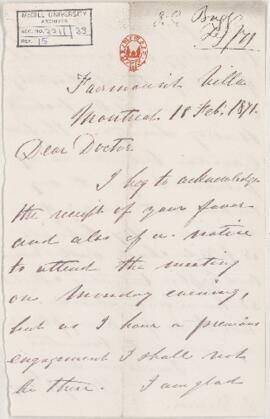 McGILL UNIVERSITY
ARCHIVES
ACC. NO. 2211 / 39
REF. 15
Fairmount Villa
Montreal 18 Feb. 1871.
Dear Doctor
I beg to acknowledge
the receipt of your favor
and also of a notice
to attend the meeting
on Monday evening,
but as I have a previous
engagement I shall not
be there. I am glad